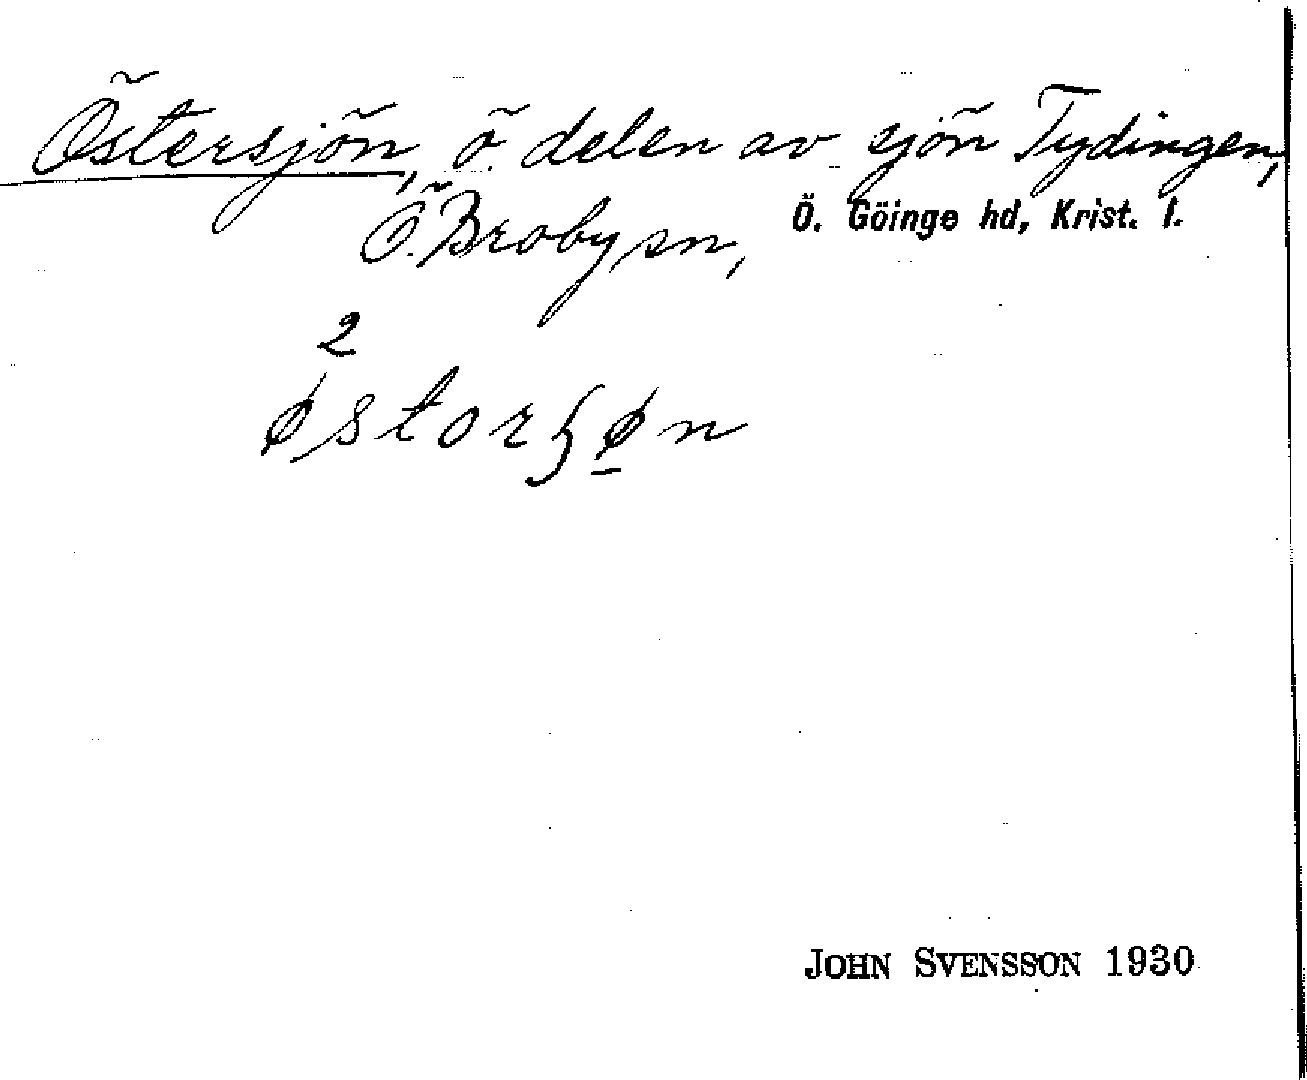 Östersjön, ö. delen av sjön Tydingen,
Ö. Broby sn, Ö. Göinge hd, Krist. l.
2
østorʂø̱n
JOHN SVENSSON 1930